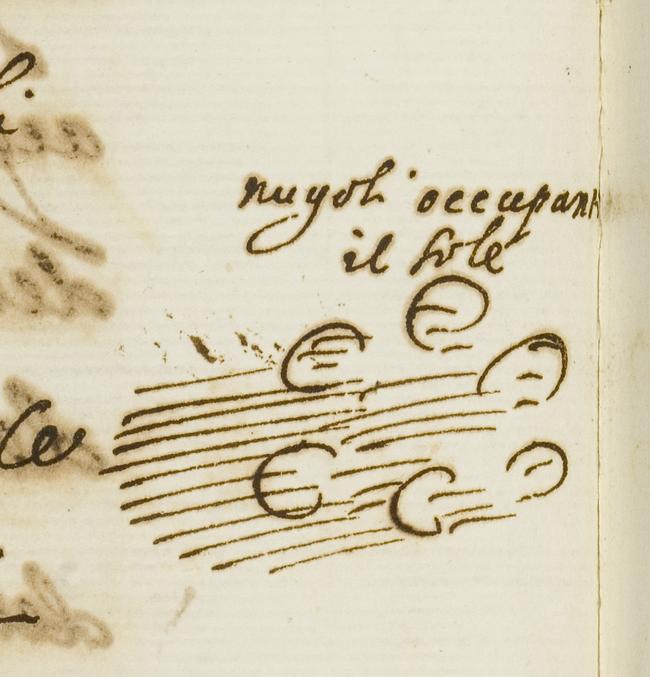 nugoli occupant
il sole